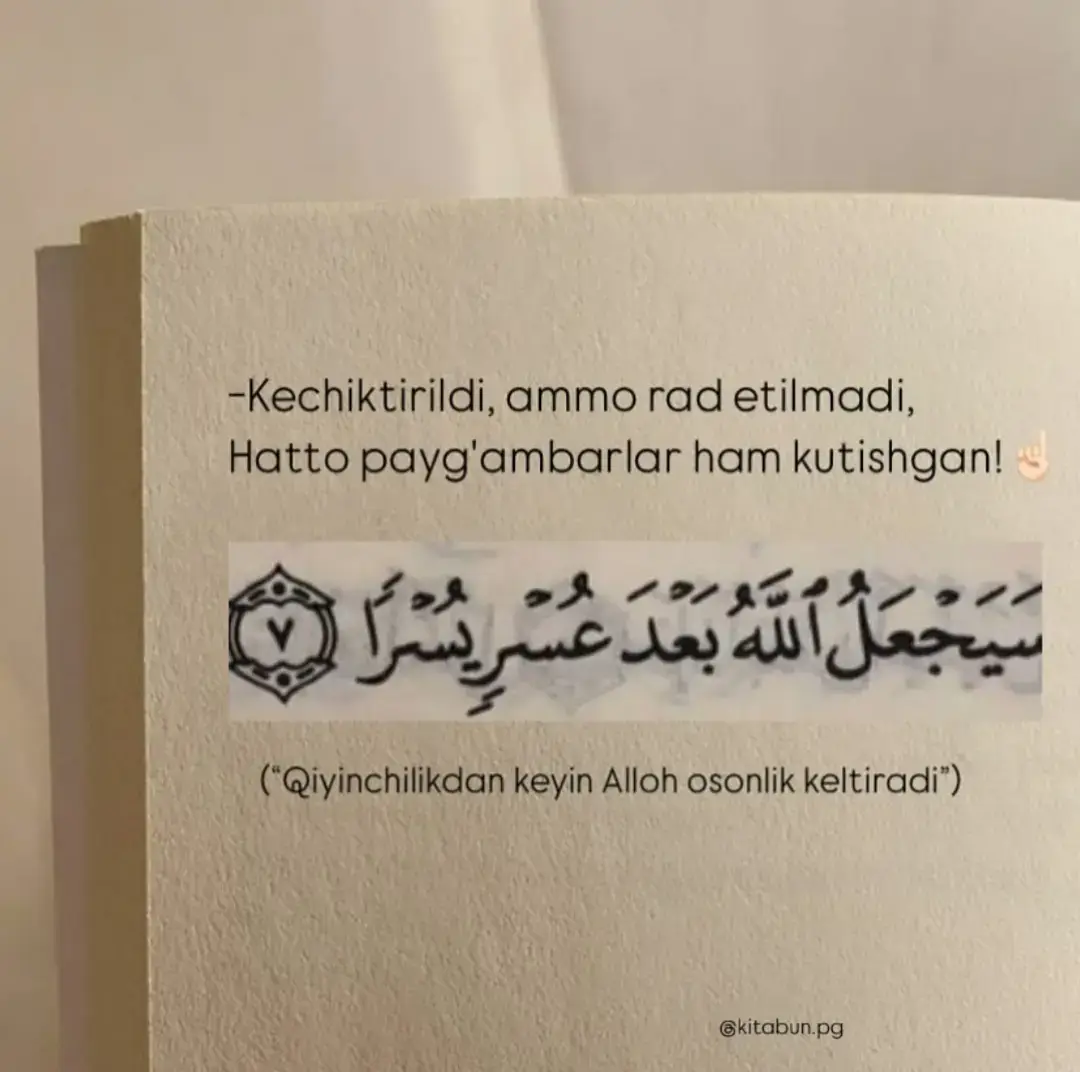 -Kechiktirildi, ammo rad etilmadi,
Hatto payg'ambarlar ham kutishgan! ☝🏻
سَيَجْعَلُ ٱللَّهُ بَعْدَ عُسْرٍ يُسْرًا ٧
("Qiyinchilikdan keyin Alloh osonlik keltiradi")
@kitabun.pg